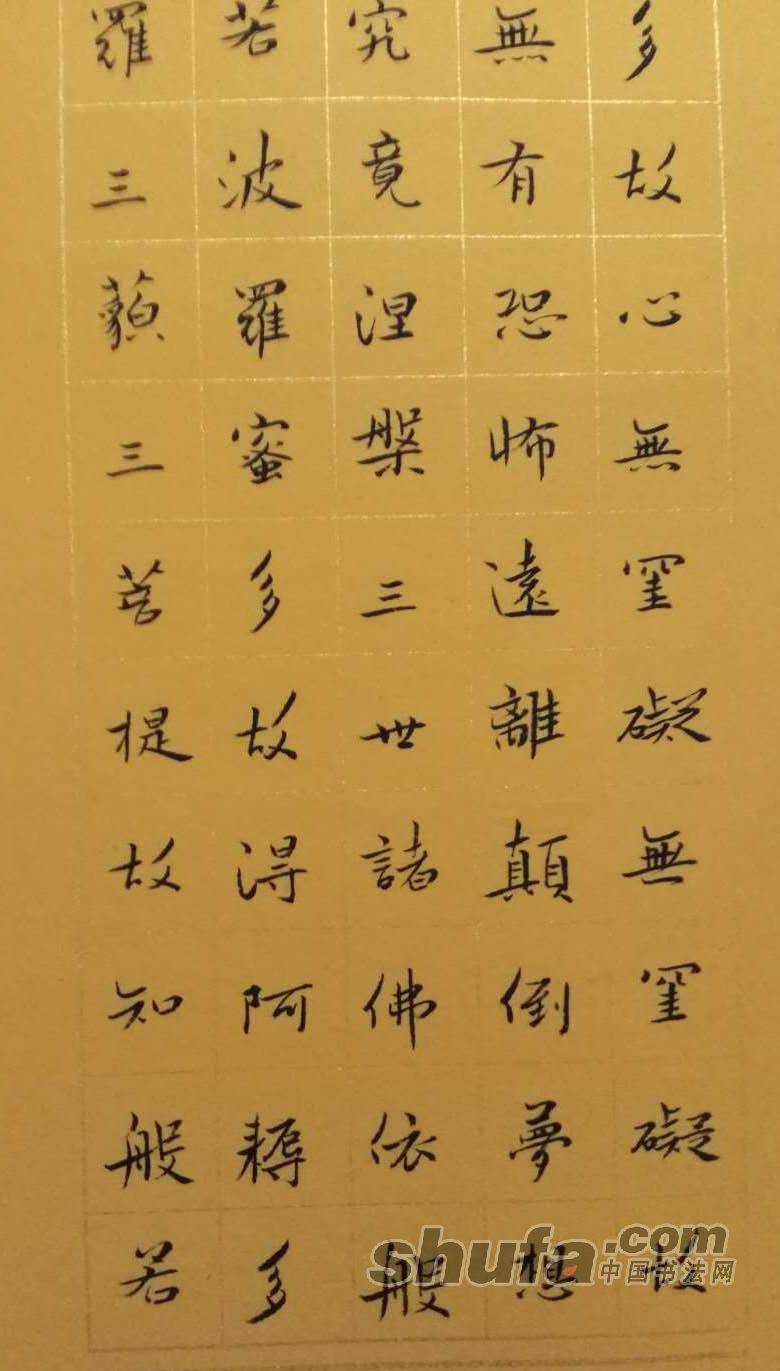 多故心無罣礙無罣礙故
無有恐怖遠離顛倒夢想
究竟涅槃三世諸佛依般
若波羅蜜多故得阿耨多
羅三藐三菩提故知般若
shufa.com
中国书法网